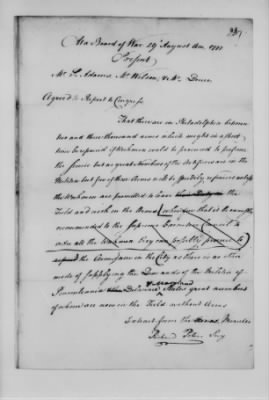 At a Board of War 29th August Ano. 1777
Present
Mr. J. Adams, Mr. Wilson, & Mr. Duer
Agreed to Report to Congress
That there are in Philadelphia between
two and three thousand arms which might in a short
time be repaired if Workmen could be procured to perform
the same but as great Numbers of the are in the
Militia but few of these Arms will be speedily repaired unless
the Workmen are permitted to leave the
Field and work on the Arms that it be earnestly
recommended to the Supreme Executive Council to
order all the Workmen they can possibly procure to
repair the Arms in the City as there is no other
mode of supplying the Demands of the Militia of
Pennsylvania Delaware & Maryland States great numbers
of whom are now in the Field without Arms
Extract from the Minutes
Richd. Peters Secy